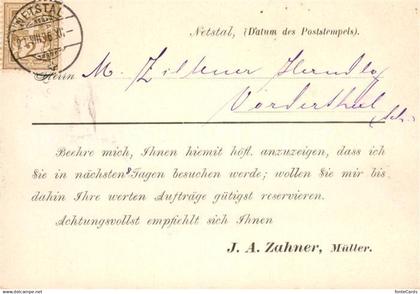 NETSTAL
Netstal, (Datum des Poststempels).
Herrn M.
Vorderthal
Beehre mich, Ihnen hiemit höfl. anzuzeigen, dass ich
Sie in nächsten Tagen besuchen werde; wollen Sie mir bis
dahin Ihre werten Aufträge gütigst reservieren.
Achtungsvollst empfiehlt sich Ihnen
J. A. Zahner, Müller.